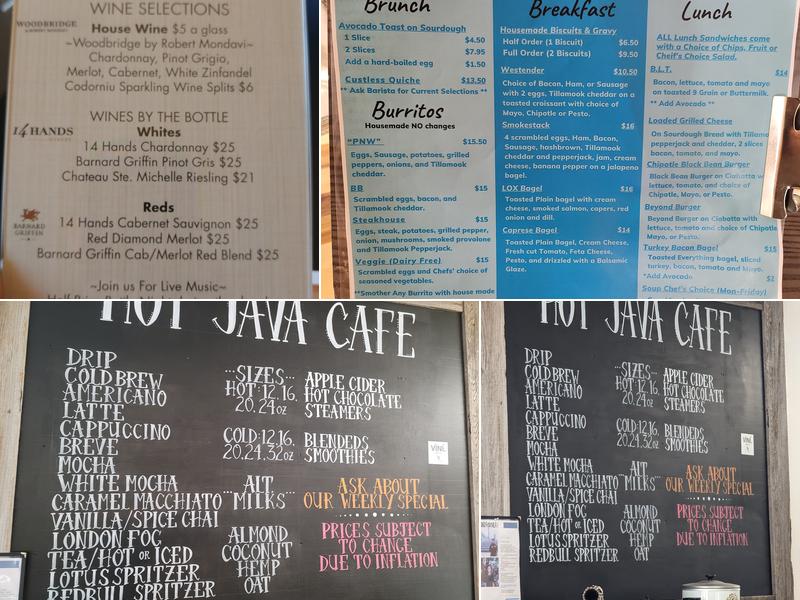 WINE SELECTIONS
WOODBRIDGE
House Wine $5 a glass
~Woodbridge by Robert Mondavi~
Chardonnay, Pinot Grigio,
Merlot, Cabernet, White Zinfandel
Codorniu Sparkling Wine Splits $6
WINES BY THE BOTTLE
14 HANDS
Whites
14 Hands Chardonnay $25
Barnard Griffin Pinot Gris $25
Chateau Ste. Michelle Riesling $21
BARNARD GRIFFIN
Reds
14 Hands Cabernet Sauvignon $25
Red Diamond Merlot $25
Barnard Griffin Cab/Merlot Red Blend $25
~Join us For Live Music~
Brunch
Avocado Toast on Sourdough
1 Slice $4.50
2 Slices $7.95
Add a hard-boiled egg $1.50
Custless Quiche $13.50
** Ask Barista for Current Selections **
Burritos
Housemade NO changes
"PNW" $15.50
Eggs, Sausage, potatoes, grilled
peppers, onions, and Tillamook
cheddar.
BB $15
Scrambled eggs, bacon, and
Tillamook cheddar.
Steakhouse $15
Eggs, steak, potatoes, grilled pepper,
onion, mushrooms, smoked provolone
and Tillamook Pepperjack.
Veggie (Dairy Free) $15
Scrambled eggs und Chefs' choice of
seasoned vegetables.
**Smother Any Burrito with house made
Breakfast
Housemade Biscuits & Gravy
Half Order (1 Biscuit) $6.50
Full Order (2 Biscuits) $9.50
Westender $10.50
Choice of Bacon, Ham, or Sausage
with 2 eggs, Tillamook cheddar on a
toasted croissant with choice of
Mayo, Chipotle or Pesto.
Smokestack $16
4 scrambled eggs, Ham, Bacon,
Sausage, hashbrown, Tillamook
cheddar and pepperjack, jam, cream
cheese, banana pepper on a jalapeno
bagel.
LOX Bagel $16
Toasted Plain bagel with cream
cheese, smoked salmon, capers, red
onion and dill.
Caprese Bagel $14
Toasted Plain Bagel, Cream Cheese,
Fresh cut Tomato, Feta Cheese,
Pesto, and drizzled with a Balsamic
Glaze.
Lunch
ALL Lunch Sandwiches come
with a Choice of Chips, Fruit or
Cheif's Choice Salad.
B.L.T. $14
Bacon, lettuce, tomato and mayo
on toasted 9 Grain or Buttermilk.
** Add Avocado **
Loaded Grilled Cheese
On Sourdough Bread with Tillamo
pepperjack and cheddar, 2 slices
bacon, tomato, and mayo.
Chipotle Black Bean Burger
Black Bean Burger on Ciabatta w
lettuce, tomato, and choice of
Chipotle, Mayo, or Pesto.
Beyond Burger
Beyond Burger on Ciabatta with
lettuce, tomato and choice of Chipotle
Mayo, or Pesto.
Turkey Bacon Bagel $15
Toasted Everything bagel, sliced
turkey, bacon, tomato and Mayo.
*Add Avocado $2
Soup Chef's Choice (Mon-Friday)
HOT JAVA CAFE
DRIP
COLD BREW
AMERICANO
LATTE
CAPPUCCINO
BREVE
MOCHA
WHITE MOCHA
CARAMEL MACCHIATO
VANILLA/SPICE CHAI
LONDON FOG
TEA/HOT OR ICED
LOTUS SPRITZER
REDBULL SPRITZER
...SIZES...
HOT:12.16.
20.24oz
COLD:12.16.
20.24.32oz
ALT
MILKS
ALMOND
COCONUT
HEMP
OAT
APPLE CIDER
HOT CHOCOLATE
STEAMERS
BLENDEDS
SMOOTHIES
VINE
ASK ABOUT
OUR WEEKLY SPECIAL
PRICES SUBJECT
TO CHANGE
DUE TO INFLATION
HOT JAVA CAFE
DRIP
COLD BREW
AMERICANO
LATTE
CAPPUCCINO
BREVE
MOCHA
WHITE MOCHA
CARAMEL MACCHIATO
VANILLA/SPICE CHAI
LONDON FOG
TEA/HOT OR ICED
LOTUS SPRITZER
REDBULL SPRITZER
...SIZES...
HOT:12.16.
20.24oz
COLD:12.16.
20.24.32oz
ALT
MILKS
ALMOND
COCONUT
HEMP
OAT
APPLE CIDER
HOT CHOCOLATE
STEAMERS
BLENDEDS
SMOOTHIES
VINE
ASK ABOUT
OUR WEEKLY SPECIAL
PRICES SUBJECT
TO CHANGE
DUE TO INFLATION